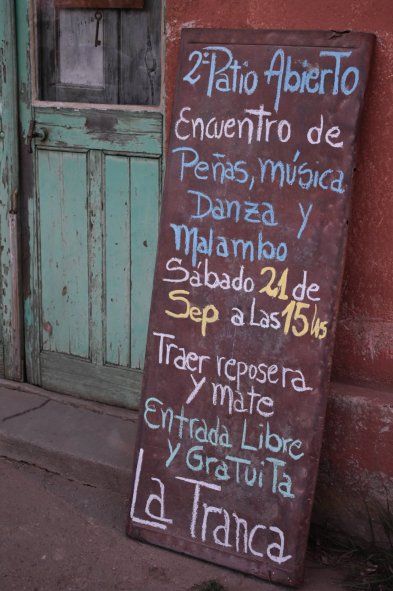 2º Patio Abierto
Encuentro de
Peñas, música
Danza y
Malambo
Sábado 21 de
Sep a las 15 hs
Traer reposera
y mate
Entrada Libre
y Gratuita
La Tranca